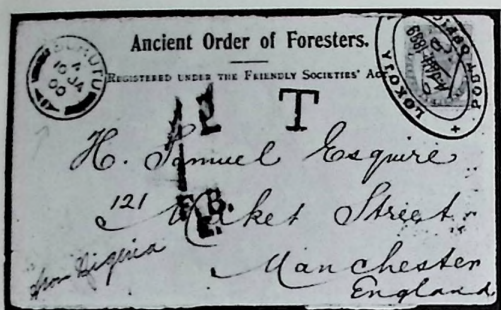 Ancient Order of Foresters.
REGISTERED UNDER THE FRIENDLY SOCIETIES' Act
BURUTU
A
16 JA
00
LOKOJA
POST OFFICE
1899
T
H. Samuel Esquire
121 Market Street
Manchester
England
from Nigeria
F.B.